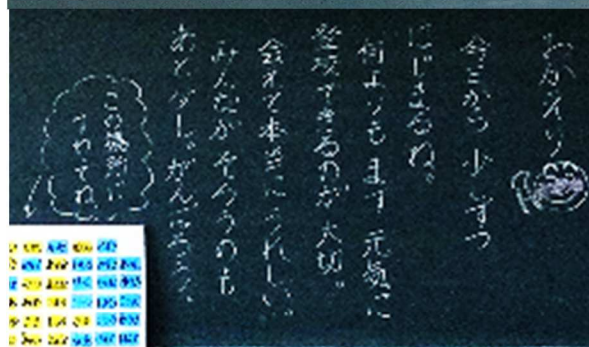 おかえり
今日から 少しずつ
はじまるね。
何よりもまず 元気に
登校できるのが 大切。
会えて本当にうれしい。
みんながそろうのも
あと少し。がんばろう。
この場所に
すわってね